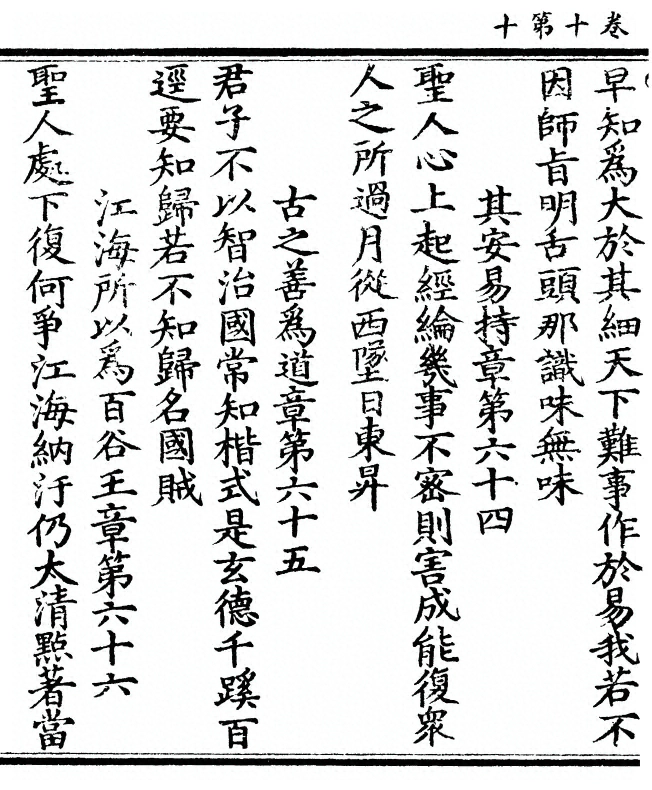 卷十第十
早知爲大於其細天下難事作於易我若不
因師旨明舌頭那識味無味
其安易持章第六十四
聖人心上起經綸幾事不密則害成能復衆
人之所過月從西墜日東昇
古之善爲道章第六十五
君子不以智治國常知楷式是玄德千蹊百
逕要知歸若不知歸名國賊
江海所以爲百谷王章第六十六
聖人處下復何爭江海納汙仍太清點著當